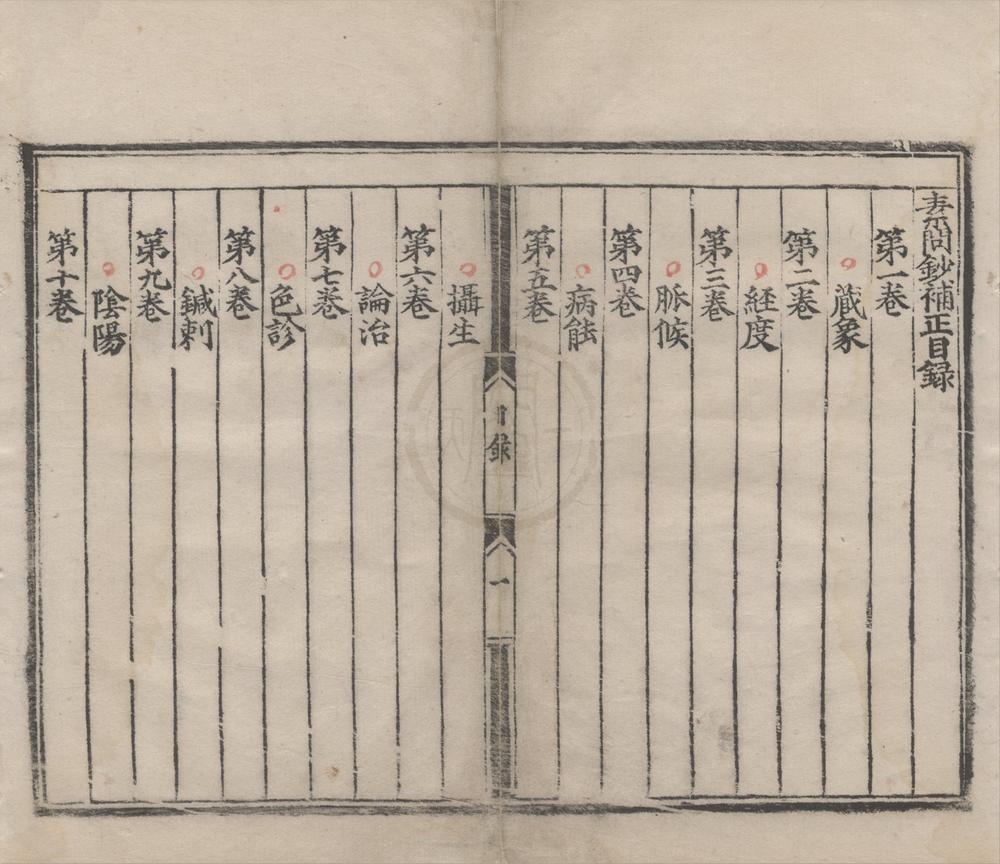 素問鈔補正目録
第一卷
藏象
第二卷
経度
第三卷
脈候
第四卷
病能
第五卷
目録
一
攝生
第六卷
論治
第七卷
色診
第八卷
鍼刺
第九卷
陰陽
第十卷